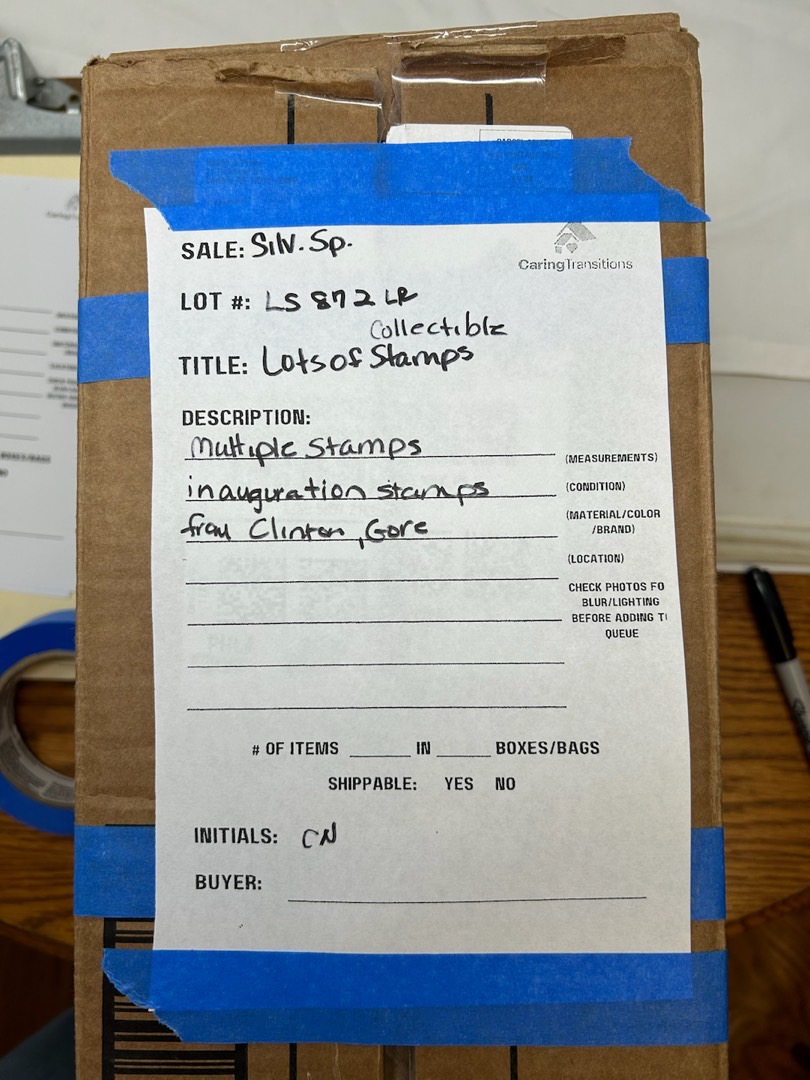 SALE: Silv. Sp.
CaringTransitions
LOT #: LS 872 LR
Collectible
TITLE: Lots of Stamps
DESCRIPTION:
Multiple Stamps
(MEASUREMENTS)
inauguration stamps
(CONDITION)
from Clinton, Gore
(MATERIAL/COLOR
/BRAND)
(LOCATION)
CHECK PHOTOS FO
BLUR/LIGHTING
BEFORE ADDING T
QUEUE
# OF ITEMS ______ IN ______ BOXES/BAGS
SHIPPABLE: YES NO
INITIALS: CN
BUYER: